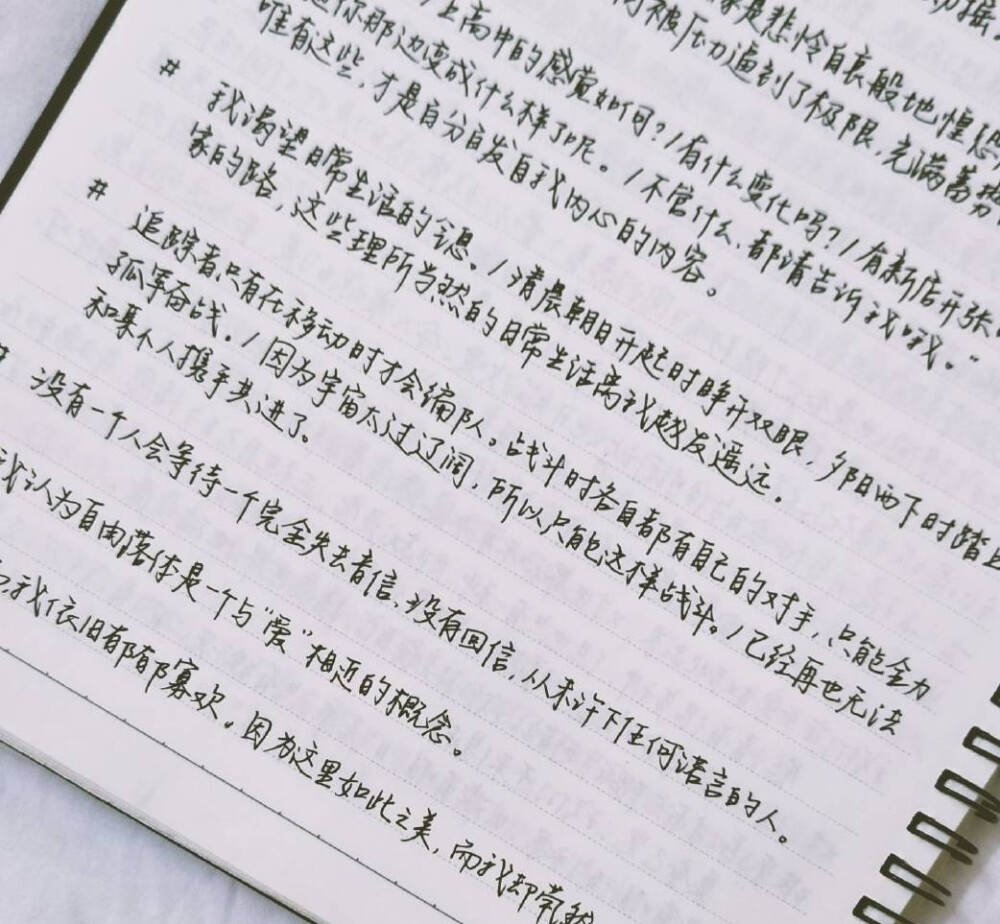 家是悲怜自哀般地惶恐
被压力逼到了极限,充满蓄势
上高中的感觉如何?/有什么变化吗?/有新店开张
你那边变成什么样了呢。/不管什么,都请告诉我哦。"
唯有这些,才是自分自发自我内心的内容。
# 我渴望日常生活的气息。/清晨朝日升起时睁开双眼,夕阳西下时踏上
家的路,这些理所当然的日常生活离我越发遥远。
# 追踪者只有在移动时才会编队。战斗时各自都有自己的对手,只能全力
孤军奋战。/因为宇宙太过辽阔,所以只能这样战斗。/已经再也无法
和某个人携手共进了。
# 没有一个人会等待一个完全失去音信,没有回信,从未许下任何诺言的人。
我认为自由落体是一个与“爱”相近的概念。
我依旧郁郁寡欢。因为这里如此之美,而我却茕然